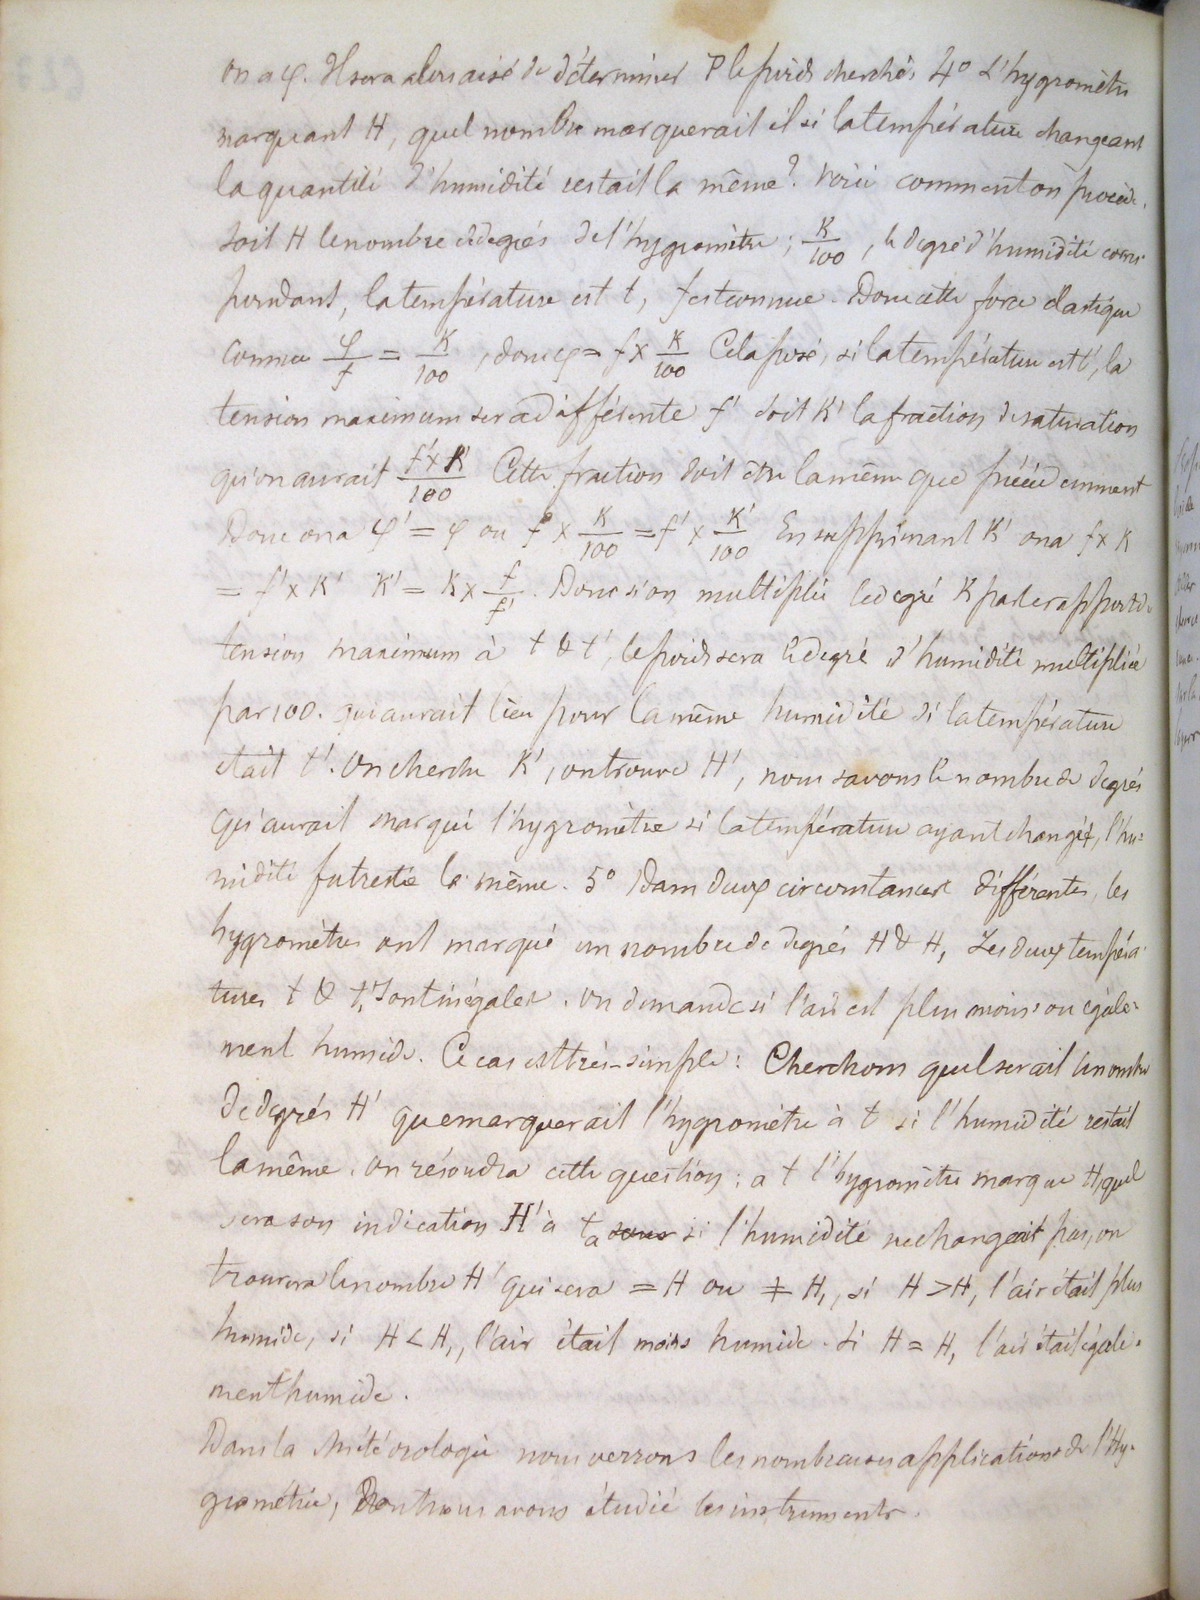 on a φ. Il sera alors aisé de déterminer P le poids cherché. 4° L'hygromètre
marquant H, quel nombre marquerait il si la température changeant
la quantité d'humidité restait la même? Voici comment on procède.
Soit H le nombre de degrés de l'hygromètre; K/100, le degré d'humidité corres-
pondant, la température est t, f est connue. Donc cette force élastique
connue φ/f = K/100, donc φ = f × K/100 Cela posé, si la température est t', la
tension maximum sera différente f' soit K' la fraction de saturation
qu'on aurait f' × K'/100 Cette fraction doit être la même que précédemment
Donc on a φ' = φ ou f × K/100 = f' × K'/100 En supprimant K' on a f × K
= f' × K' K' = K × f/f'. Donc si on multiplie le degré K par le rapport de
tension maximum à t & t', le poids sera le degré d'humidité multipliée
par 100. qui aurait lieu pour la même humidité si la température
était t'. On cherche K', on trouve H', nous savons le nombre de degrés
qu'aurait marqué l'hygromètre si la température ayant changé, l'hu-
midité fut restée la même. 5° Dans deux circonstances différentes, les
hygromètres ont marqué un nombre de degrés H & H, Les deux tempéra-
tures t & t, sont inégales. On demande si l'air est plus moins ou égale-
ment humide. Ce cas est très-simple: Cherchons quel serait le nombre
de degrés H' que marquerait l'hygromètre à t si l'humidité restait
la même. on résoudra cette question; a t l'hygromètre marque H, quel
sera son indication H' à t, si l'humidité ne changeait pas, on
trouvera le nombre H' qui sera = H ou ≠ H,, si H > H, l'air était plus
humide, si H < H,, l'air était moins humide. Si H = H, l'air était égale-
ment humide.
Dans la Météorologie nous verrons les nombreuses applications de l'Hy-
grométrie, Dont nous avons étudié les instruments.